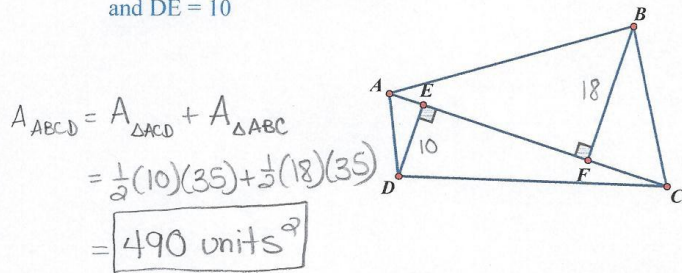 and DE = 10
A ABCD = A ΔACD + A ΔABC
= 1/2(10)(35)+1/2(18)(35)
= 490 units²
A
E
B
18
10
D
F
C